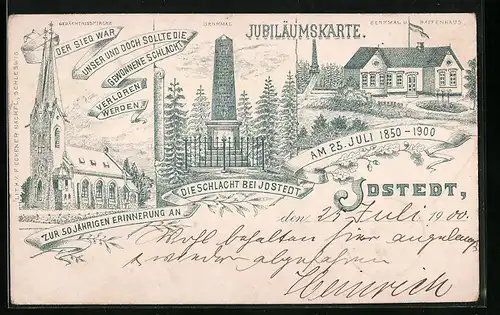 GEDÄCHTNISSKIRCHE
DENKMAL
JUBILÄUMSKARTE.
DENKMAL U. WAFFENHAUS.
DER SIEG WAR
UNSER UND DOCH SOLLTE DIE
GEWONNENE SCHLACHT
VERLOREN
WERDEN.
AM 25. JULI 1850-1900
DIE SCHLACHT BEI JDSTEDT
ZUR 50 JÄHRIGEN ERINNERUNG AN
JDSTEDT,
den 25 Juli 1900.
Wohl behalten hier angelangt
& wieder abgefahren
Heinrich